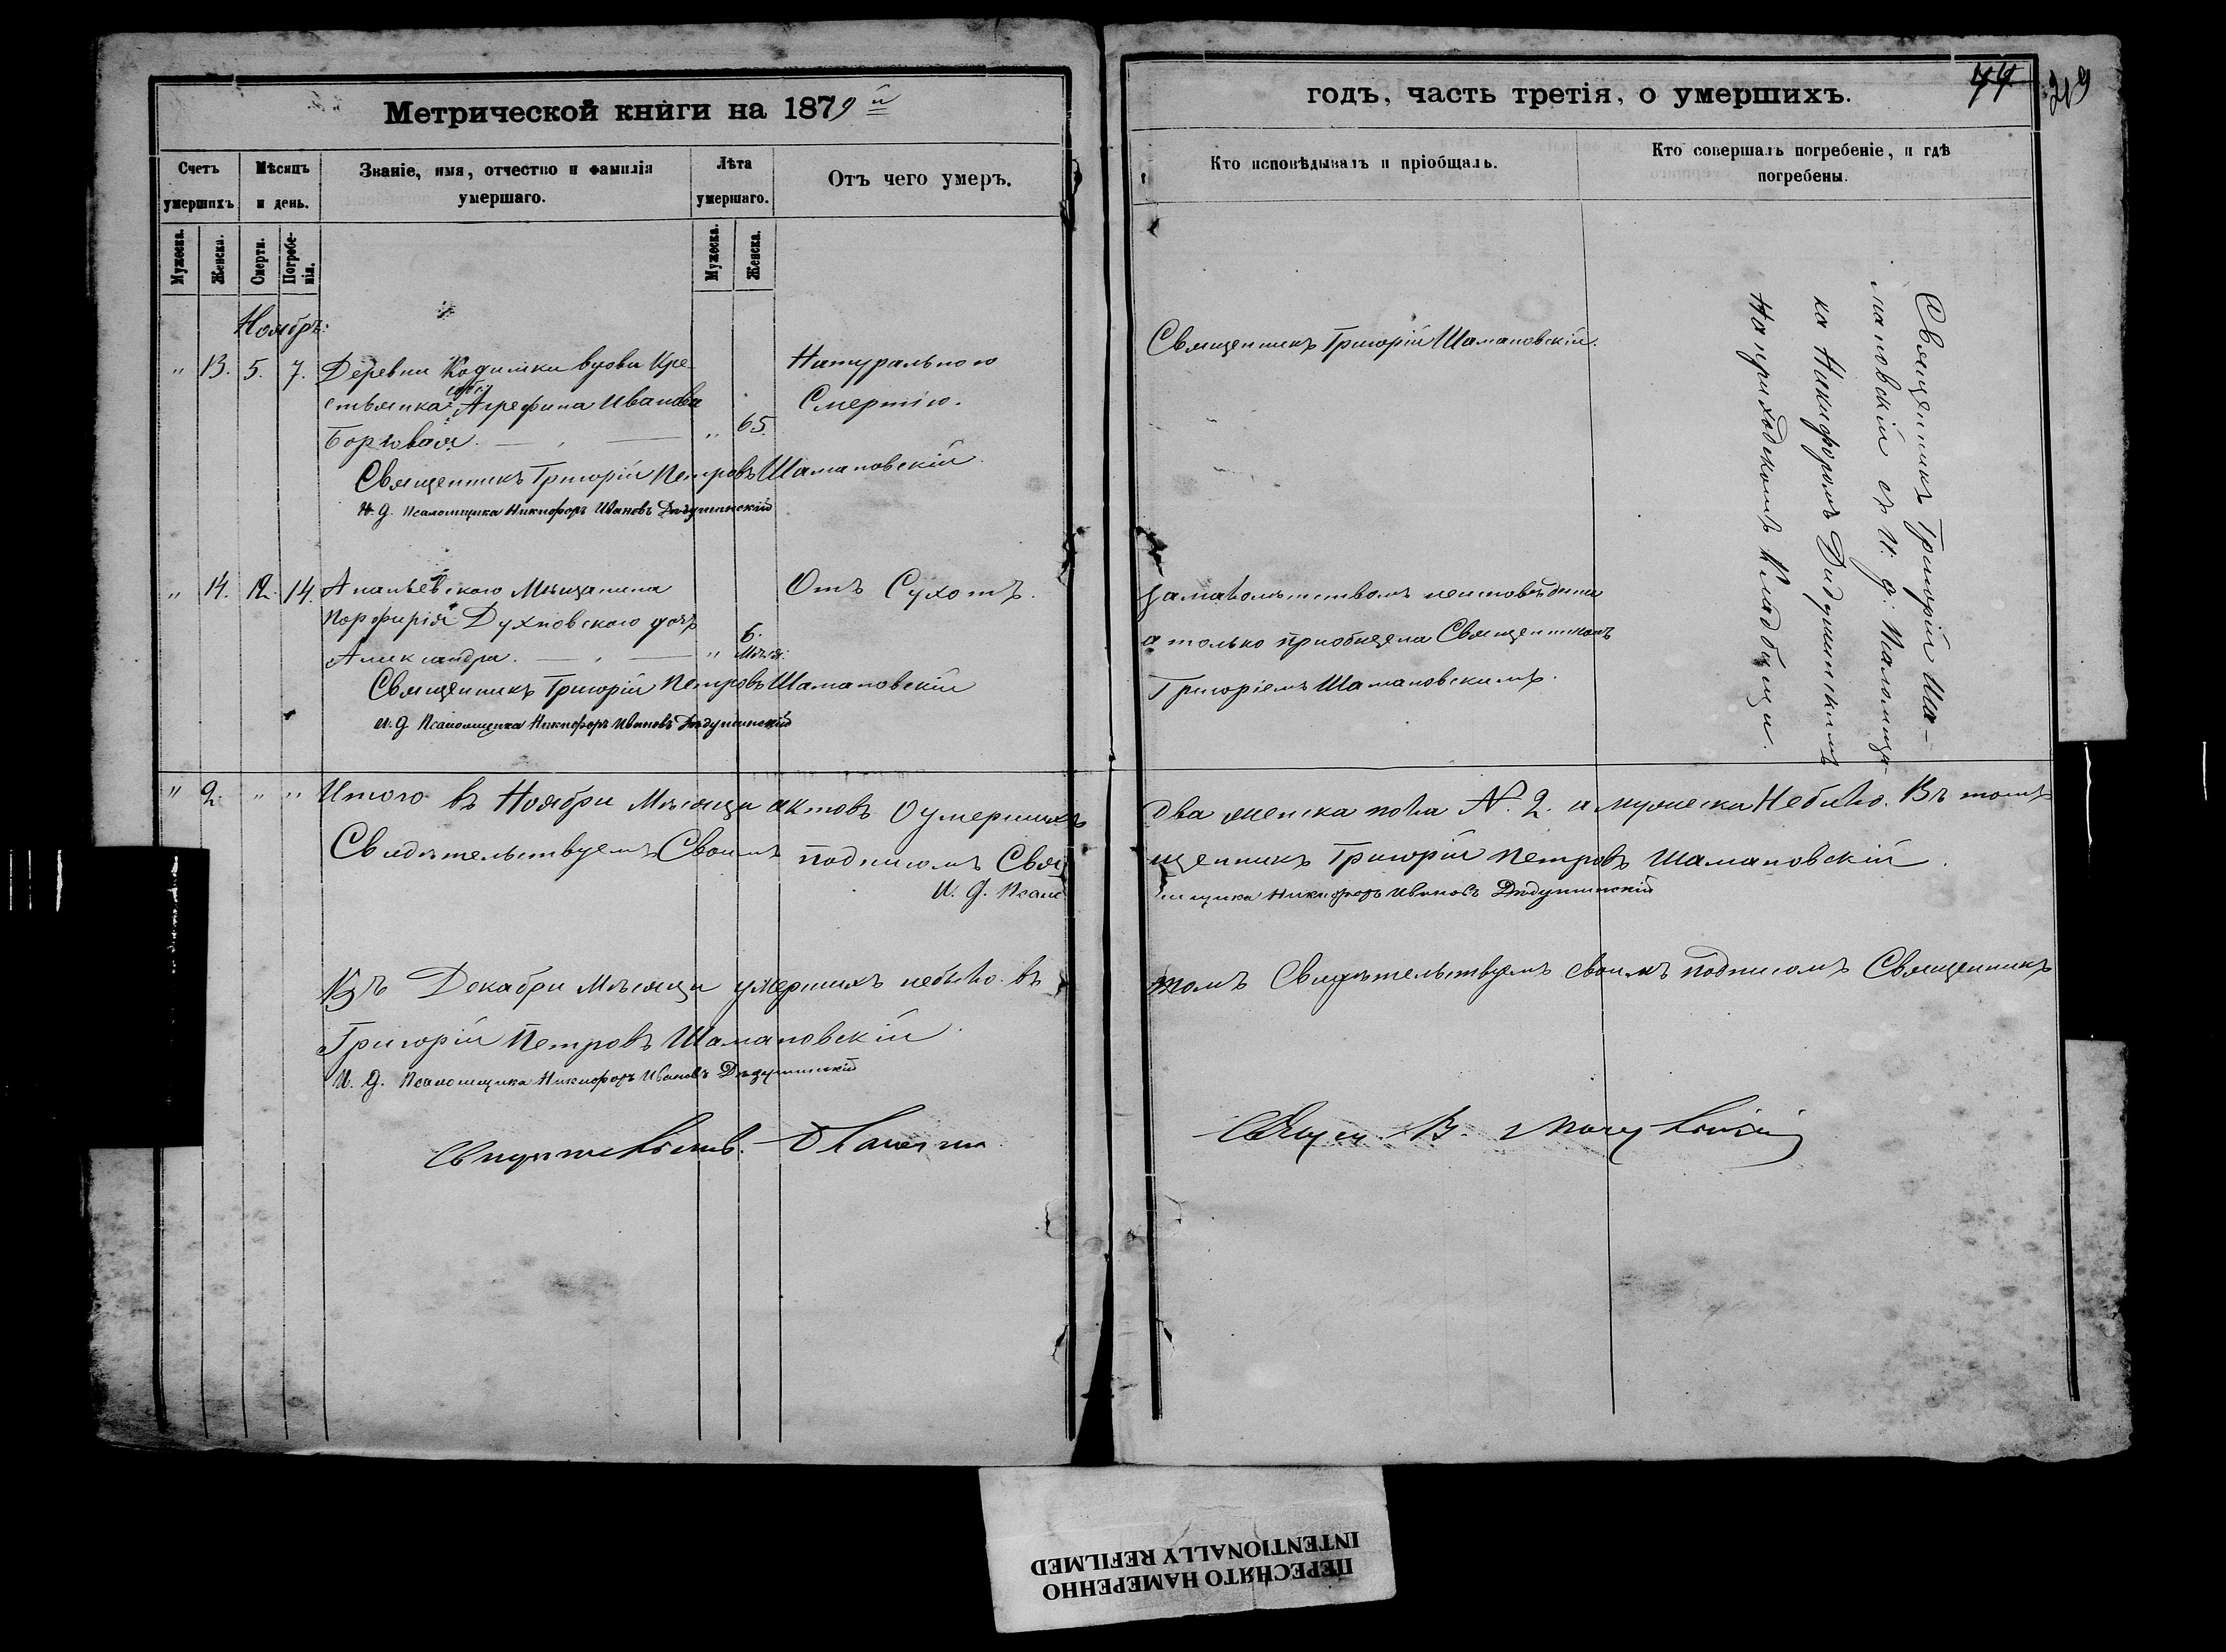 Метрической книги на 1879й
Счетъ умершихъ
Мѣсяцъ и день.
Званіе, имя, отчество и фамилія умершаго.
Лѣта умершаго.
Отъ чего умеръ.
Мужеска.
Женска.
Смерти.
Погребенія.
Мужеска.
Женска.
Ноябрь:
" 13. 5. 7. Деревни Кодимки вдова Кре
стьянка Агрефина Иванова
Борговая. — " 65.
Натуральною
Смертію.
Священникъ Григорій Петровъ Шамановскій
И. д. Псаломщика Никифоръ Ивановъ Дѣдушинскій
" 14. 12. 14. Ананьевского Мѣщанина
Порфирія Духновского дочь
Александра. — " 6. Мѣся:
Отъ Сухотъ.
Священникъ Григорій Петровъ Шамановскій
И. д Псаломщика Никифоръ Ивановъ Дѣдушинскій
" 2. " " Итого въ Ноябри Мѣсяци актовъ О умершихъ
Свидѣтельствуемъ Своимъ подписомъ Свя
И. д. Псало
Въ Декабри Мѣсяци умершихъ небыло. въ
Григорій Петровъ Шамановскій
И. д. Псаломщика Никифоръ Ивановъ Дѣдушинскій
годъ, часть третія, о умершихъ.
44
219
Кто исповѣдывалъ и пріобщалъ.
Кто совершалъ погребеніе, и гдѣ
погребены.
Священникъ Григорій Шамановскій.
замалолѣтствомъ неисповѣдана
а только приобщена Священникомъ
Григоріемъ Шамановскимъ.
Священникъ Григорій Ша-
мановскій съ И: д: Псаломщи-
ка Никифоромъ Дидушинскимъ
На приходскомъ Кладбищи.
два женска пола №. 2. а мужеска Небыло. Въ томъ
щенникъ Григорій Петровъ Шамановскій.
мщика Никифоръ Ивановъ Дѣдушинскій
томъ Свидѣтельствуемъ своимъ подписомъ Священникъ
ПЕРЕСНЯТО НАМЕРЕННО
INTENTIONALLY REFILMED